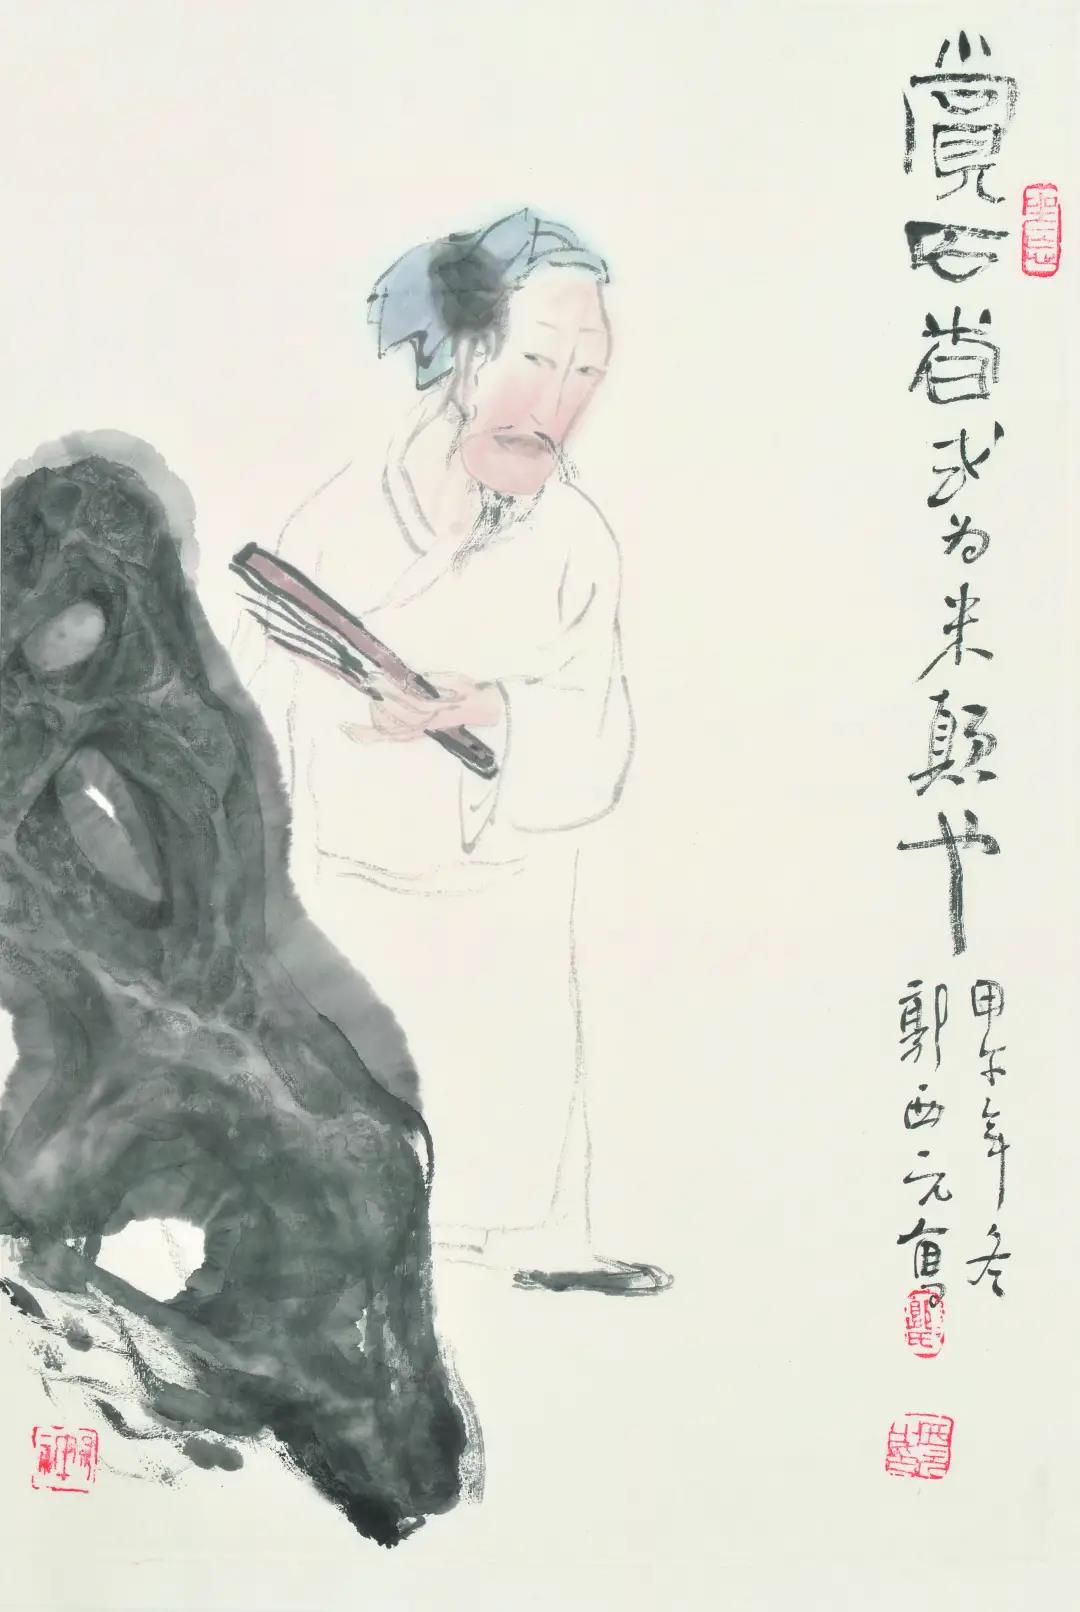 賞石者或为米颠也
甲午年冬
郭西元寫